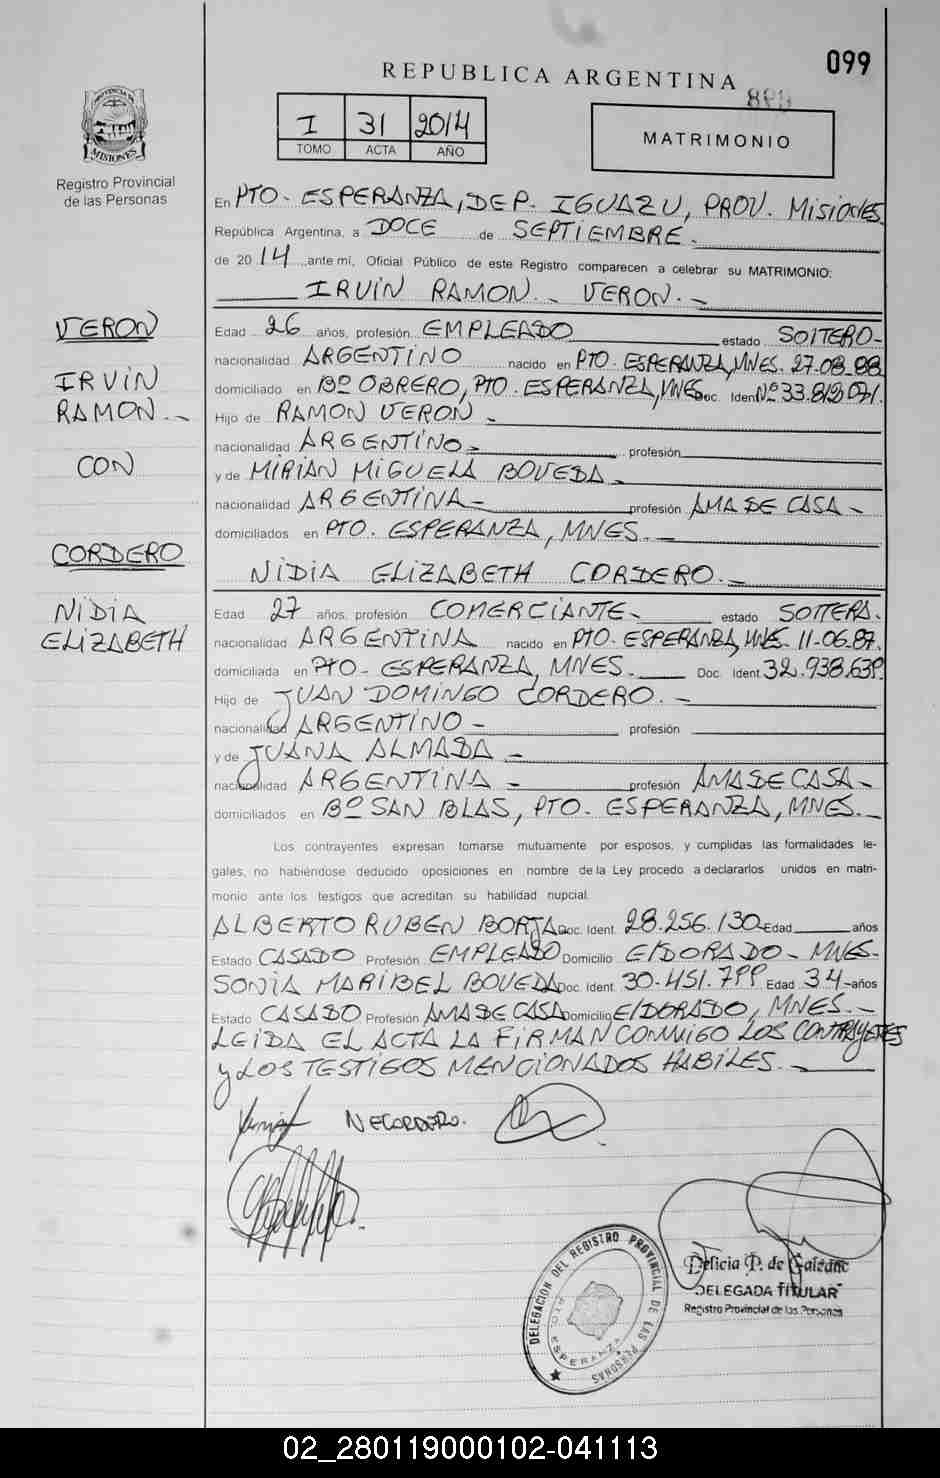 099
REPUBLICA ARGENTINA
I 31 2014
TOMO ACTA AÑO
MATRIMONIO
PROVINCIA DE
MISIONES
Registro Provincial
de las Personas
En PTO. ESPERANZA, DEP. IGUAZU, PROV. MISIONES
República Argentina, a DOCE de SEPTIEMBRE.
de 2014 ante mí, Oficial Público de este Registro comparecen a celebrar su MATRIMONIO:
IRVIN RAMON VERON.-
VERON
IRVIN
RAMON
CON
CORDERO
NIDIA
ELIZABETH
Edad 26 años, profesión EMPLEADO estado SOLTERO-
nacionalidad ARGENTINO nacido en PTO. ESPERANZA, MNES. 27-08-88
domiciliado en Bº OBRERO, PTO. ESPERANZA, MNES Doc. Iden Nº 33.813071.
Hijo de RAMON VERON -
nacionalidad ARGENTINO- profesión
y de MIRIAN MIGUELA BOVEDA
nacionalidad ARGENTINA- profesión AMA DE CASA-
domiciliados en PTO. ESPERANZA, MNES.-
NIDIA ELIZABETH CORDERO.-
Edad 27 años, profesión COMERCIANTE- estado SOLTERA.
nacionalidad ARGENTINA nacido en PTO. ESPERANZA, MNES. 11-06-87.
domiciliada en PTO- ESPERANZA, MNES. Doc. Ident. 32.938.639.
Hijo de JUAN DOMINGO CORDERO.-
nacionalidad ARGENTINO- profesión
y de JUANA ALMADA -
nacionalidad ARGENTINA - profesión AMA DE CASA-
domiciliados en Bº SAN BLAS, PTO. ESPERANZA, MNES.-
Los contrayentes expresan tomarse mutuamente por esposos, y cumplidas las formalidades le-
gales, no habiéndose deducido oposiciones en nombre de la Ley procedo a declararlos unidos en matri-
monio ante los testigos que acreditan su habilidad nupcial.
ALBERTO RUBEN BORJA Doc. Ident. 28.256.130 Edad años
Estado CASADO Profesión EMPLEADO Domicilio ElDORADO - MNES-
SONIA MARIBEL BOVEDA Doc. Ident. 30-451.799 Edad 34 años
Estado CASADO Profesión AMA DE CASA Domicilio ElDORADO, MNES.-
LEIDA EL ACTA LA FIRMAN CONMIGO LOS CONTRAYETES
y LOS TESTIGOS MENCIONADOS HABILES.-
NECORDERO.
DELEGACION DEL REGISTRO PROVINCIAL DE LAS PERSONAS
PTO ESPERANZA
Delicia P. de Galeano
DELEGADA TITULAR
Registro Provincial de las Personas
02_280119000102-041113